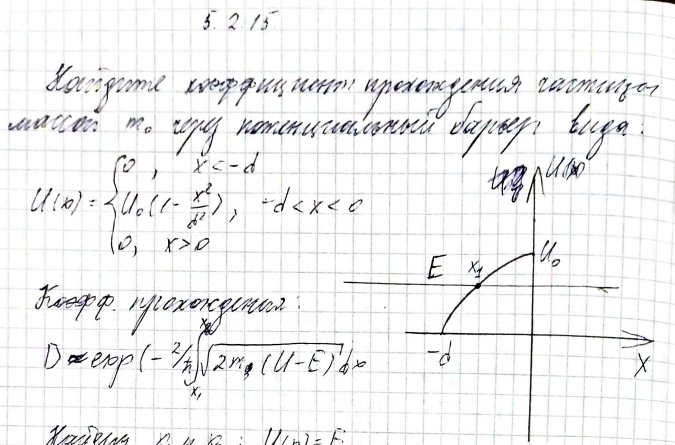 5.2.15
Найдите коэффициент прохождения частицы
массой m₀ через потенциальный барьер вида:
U(x) = { 0, x < -d
U₀(1 - x²/d²), -d < x < 0
0, x > 0
U(x)
U₀
E
x₁
-d
x
Коэфф. прохождения:
D ~ exp(-2/ħ ∫ₓ₁ˣ² √2m₀(U-E) dx
U(x) = E